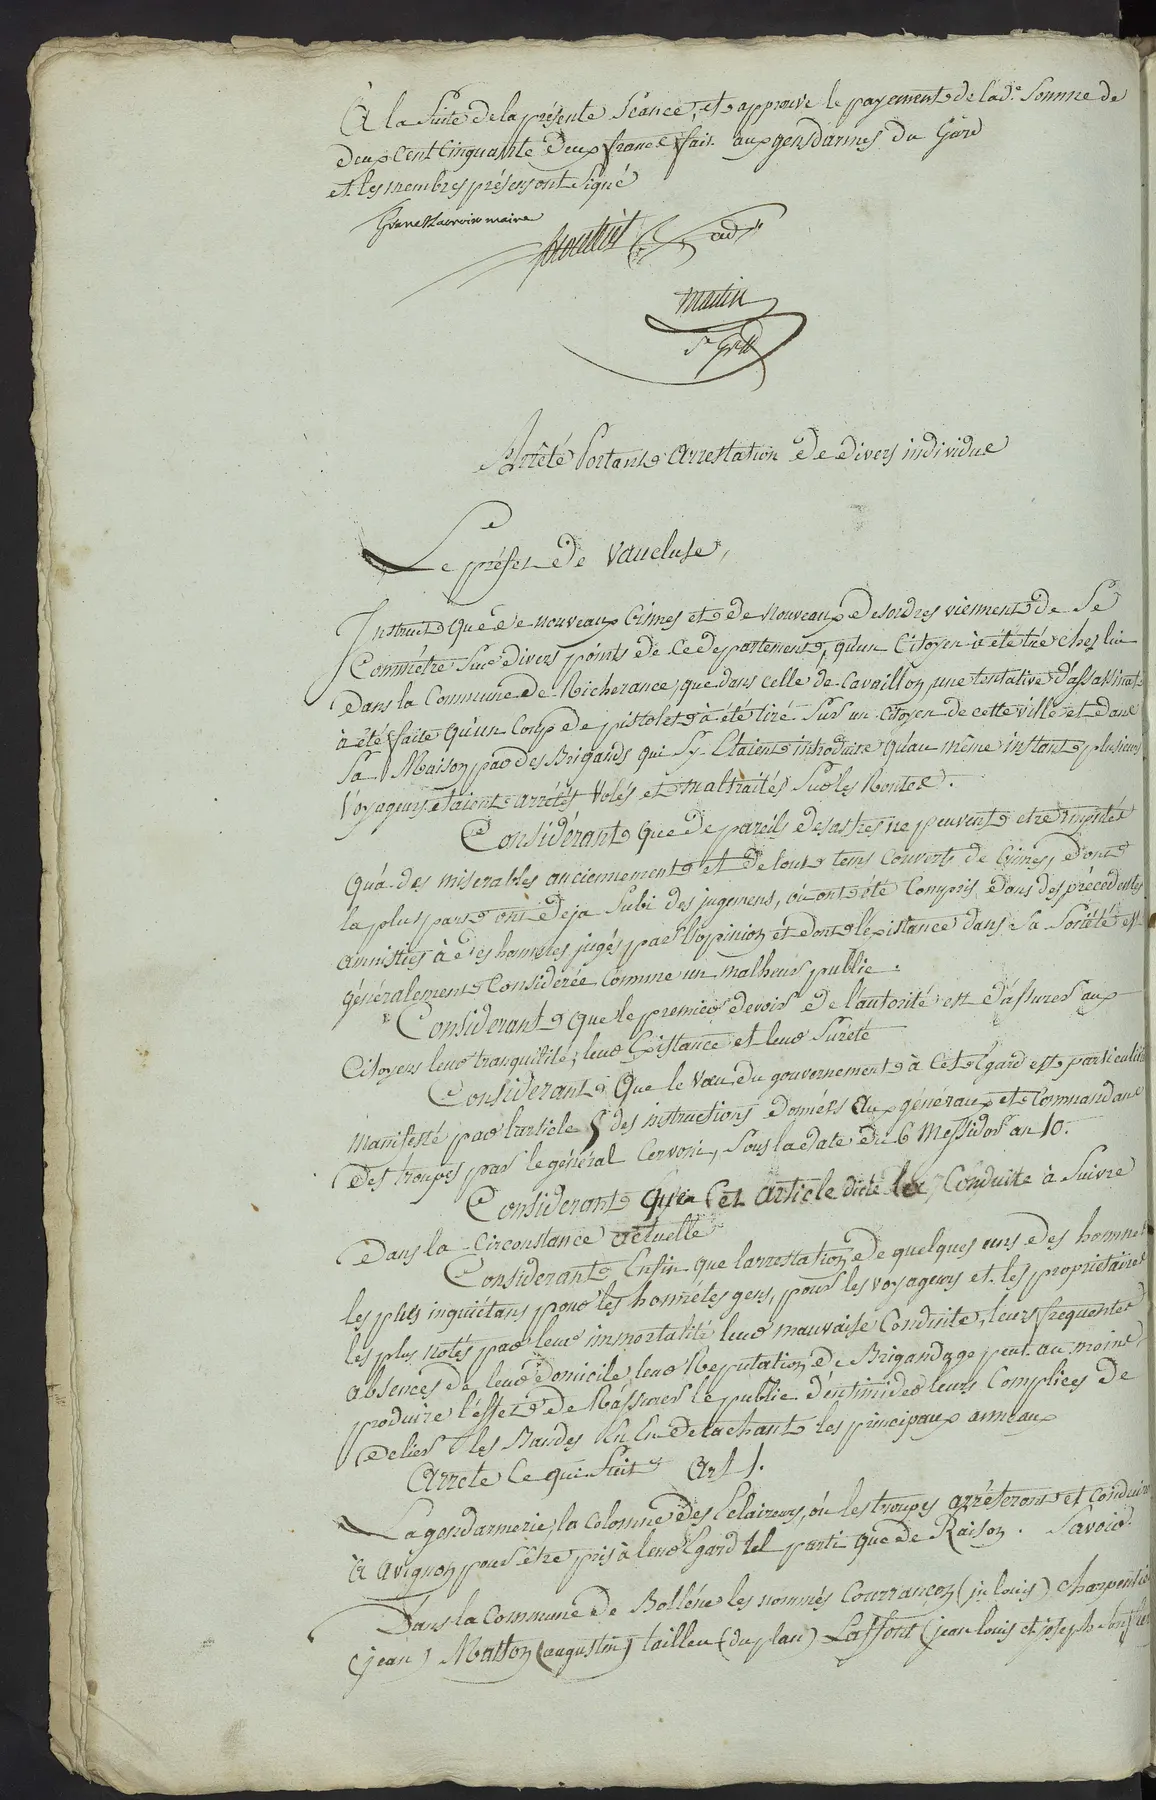 À la Suite de la présente Séance, et approuve le payement de lad.e Somme de
deux Cent Cinquante deux francs fait aux gensdarmes du Gard
et les membres présens ont Signé
maire
Martin
S.re Greff.
Arrêté Portant Arrestation de divers individus
Le préfet de Vaucluse,
Instruit que de nouveaux Crimes et de nouveaux desordres viennent de Se
Commétre Sur divers points de Ce departement, qu'un Citoyen à été tué chez lui
Dans la Commune de Richerance, que dans celle de Cavaillon une tentative d'assassinat
à été faite qu'un Coup de pistolet à été tiré Sur un Citoyen de cette ville et dans
Sa Maison par des Brigands qui Sy étaient introduits qu'au même instant plusieurs
Voyageurs étaient arrêtés Volés et maltraités Sur les Routes.
Considérant que de pareils desastres ne peuvent etre imputés
qu'à des miserables anciennement et de tout tems couverts de Crimes, dont
la plus part ont deja Subi des jugemens, où ont été Compris dans des précédentes
amnisties à des hommes jugés par l'opinion et dont l'éxistance dans la Société est
généralement Considérée Comme un malheur public.
Considerant que le premier devoir de l'autorité est d'assurer aux
Citoyens leur tranquilité, leur Existance et leur Sureté
Considerant que le vœu du gouvernement à cet Egard est particulier
Manifesté par l'article 5 des instructions données aux généraux et Commandans
Des troupes par le général Cervoni, Sous la date du 6 Messidor an 10.
Considerant que Cet article dicte la Conduite à Suivre
Dans la Circonstance actuelle
Considerant Enfin que l'arrestation de quelques uns des hommes
les plus inquiétans pour les honnêtes gens, pour les voyageurs et les propriétaires
les plus notés par leur immortalité leur mauvaise Conduite, leurs frequentes
absences de leur domicile leur Réputation de Brigandage peut au moins
produire l'effet de Rassurer le public d'intimider leurs Complices de
Delier les Bandes En En detachant les principaux anneaux
Arrete Ce qui Suit Art 1.
La gendarmerie, la Colonne des Eclaireurs, où les troupes arrêteront et conduiront
à Avignon pour être pris à leur Egard tel parti que de Raison. Savoir
Dans la Commune de Bollène les nommés Courrançon (jn louis) Charpentier
(jean) Matton (augustin) tailleu (du plan) Laffont (jean louis et joseph